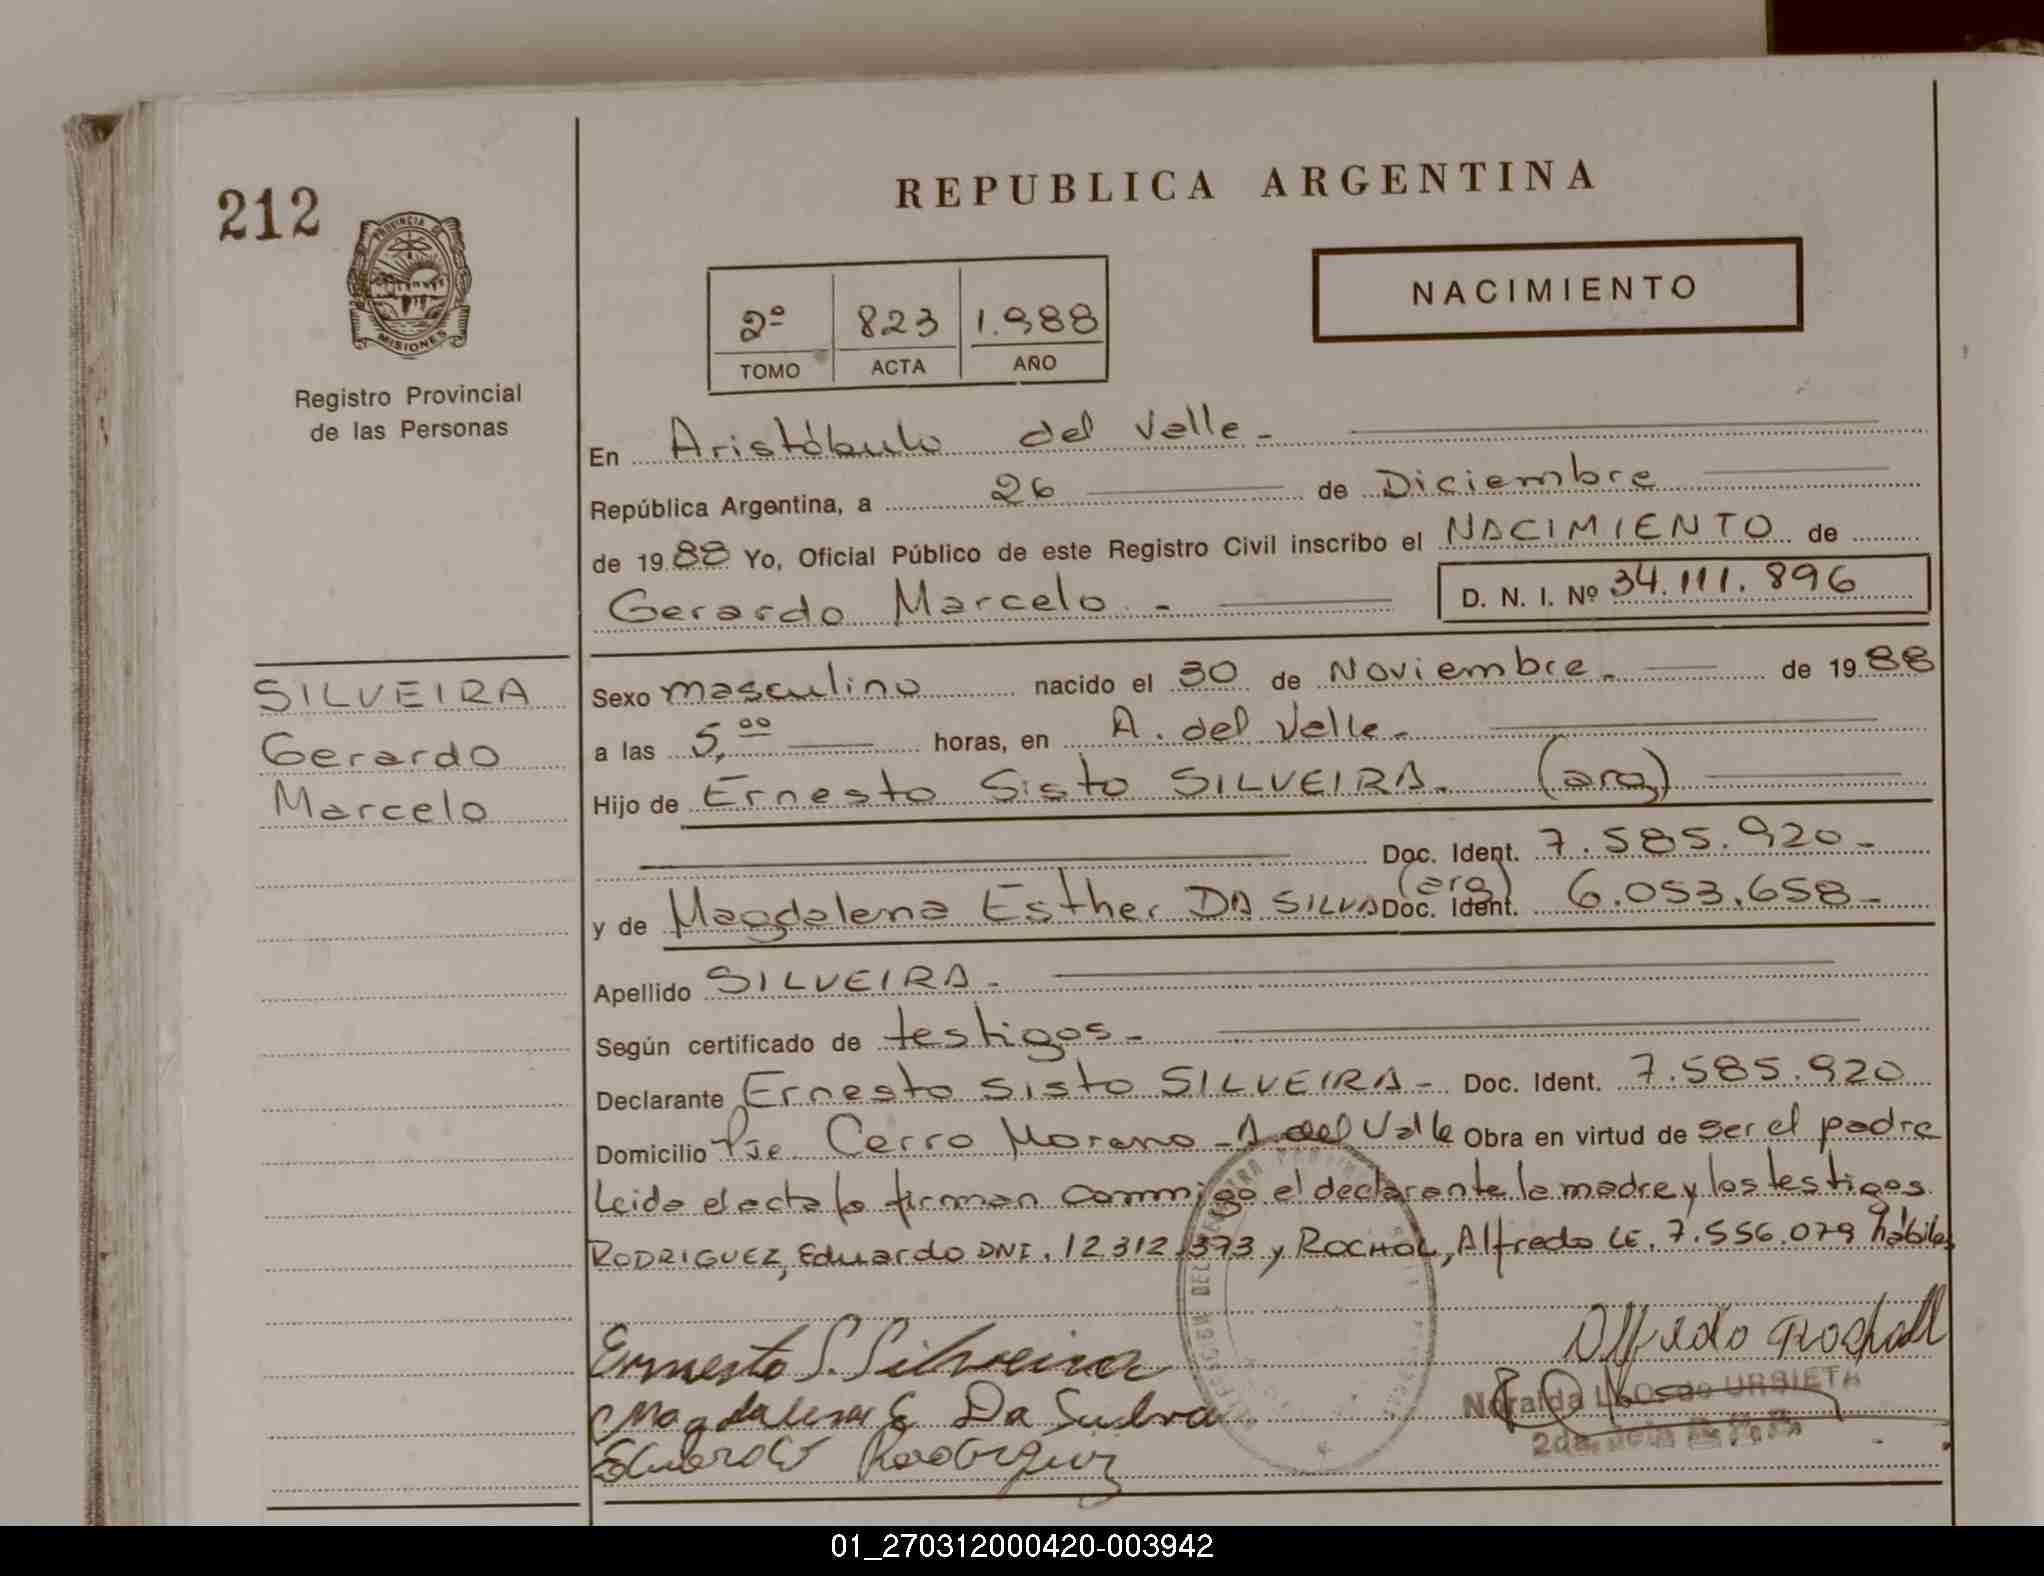 REPUBLICA ARGENTINA
212
PROVINCIA DE
MISIONES
Registro Provincial
de las Personas
NACIMIENTO
2º 823 1.988
TOMO ACTA AÑO
En Aristóbulo del Valle.-
República Argentina, a 26 de Diciembre
de 1988 Yo, Oficial Público de este Registro Civil inscribo el NACIMIENTO de
Gerardo Marcelo.- D. N. I. Nº 34.111.896
SILVEIRA
Gerardo
Marcelo
Sexo masculino nacido el 30 de Noviembre.- de 1988
a las 5,00 horas, en A. del Valle.-
Hijo de Ernesto Sisto SILVEIRA. (arg)
Doc. Ident. 7.585.920-
y de Magdalena Esther DA SILVA (arg) Doc. Ident. 6.053.658-
Apellido SILVEIRA.-
Según certificado de testigos-
Declarante Ernesto Sisto SILVEIRA- Doc. Ident. 7.585.920
Domicilio Pje Cerro Moreno-A.del Valle Obra en virtud de ser el padre
Leida el acta la firman conmigo el declarante la madre y los testigos
RODRIGUEZ, Eduardo DNI. 12312.373 y ROCHOL, Alfredo LE. 7.556.079 hábiles
Ernesto S. Silveira
Alfredo Rochall
Magdalena E Da Sulva
Eduardo Rodriguez
de URBIETA
01_270312000420-003942